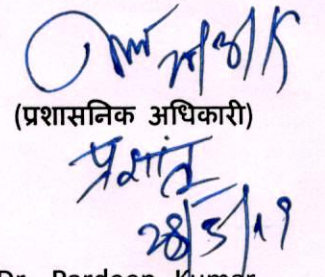 (प्रशासनिक अधिकारी)
प्रशांत
28/3/19
Dr. Pardeep Kumar